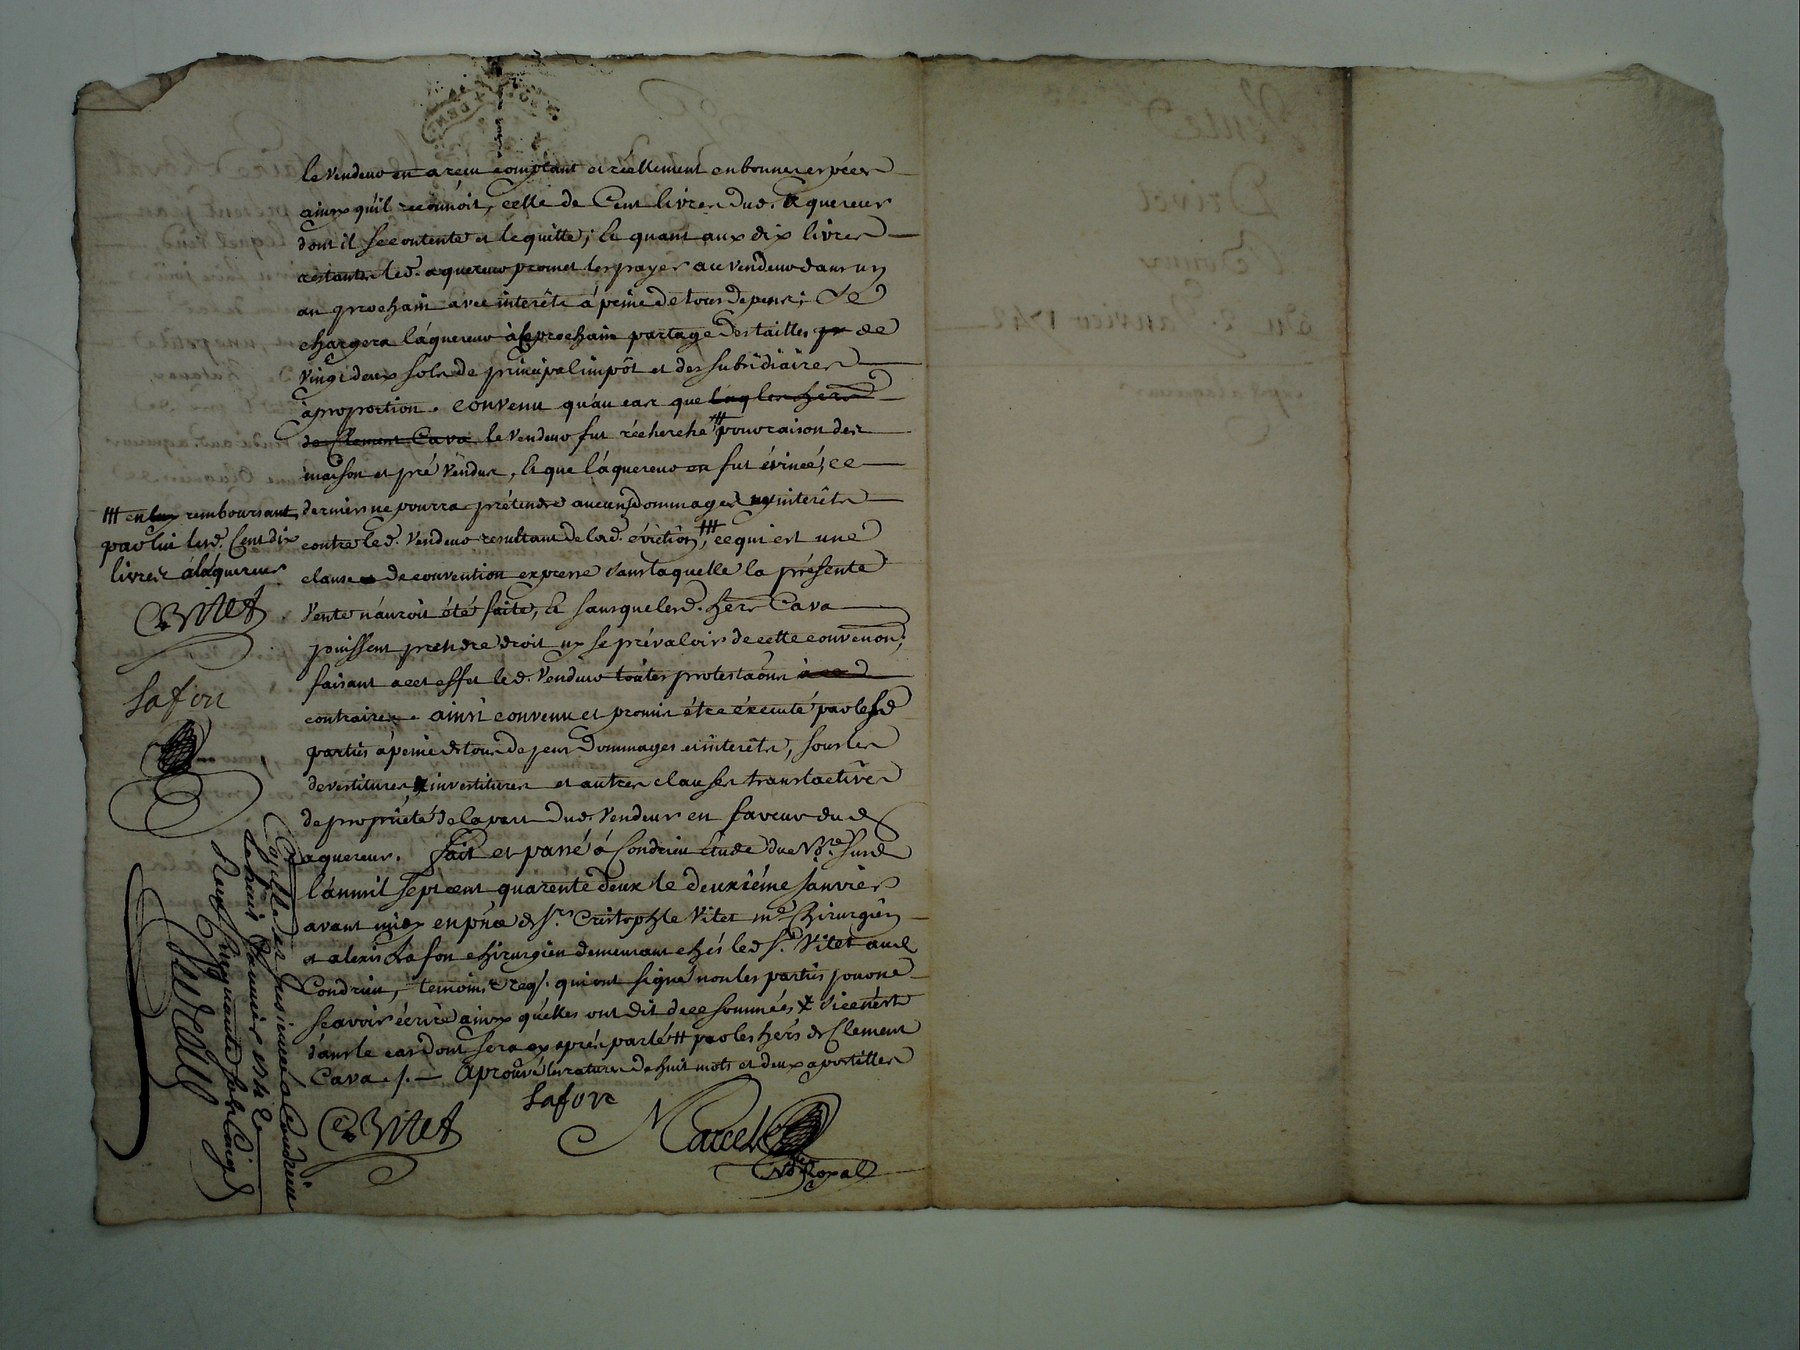 le vendeur en a reçu comptant et réellement en bonnes espéces
ainsy quil reconnoit, celle de Cent livres dud. aquereur
dont il se contente et le quitte; Et quant aux dix livres
restantes led. aquereur promet les payer au vendeur dans un
an prochain avec interêts á peine de tous depens; Se
chargera láquereur au prochain partage des tailles de
vingt deux sols de principal impôt et des subsidiaires
á proportion. convenu qu'au cas que les hers
de Clement Cava le vendeur fut récherché pour raison des
maison et pré vendus, Et que láquereur en fut évincé, ce
dernier ne pourra prétendre aucuns dommages ny interêts
contre led. vendeur resultant de lad. éviction, ce qui est une
clause de convention expresse sans laquelle la présente
vente n'auroit été faite, Et sans que lesd. hers Cava
puissent prendre droit ny se prévaloir de cette convenôn;
faisant a cet effet led. vendeur toutes protestaôns
contraires. ainsi convenu et promis être éxecuté par lesd
parties á peine de tous depens dommages et interêts, sous les
devestitures investitures et autres clauses translatives
de proprieté de la part dud. vendeur en faveur dud
aquereur. fait et passé á Condrieu Etude du Nre. susd
l'an mil sept cent quarente deux le deuxiéme Janvier
avant midy en pñce de Sr. Cristophle Vitet me. Chirurgien
et alexis Lafon chirurgien demeurant chés led Sr. Vitet aud
Condrieu, temoins req. qui ont signé non les parties pour ne
sçavoir écrire ainsy quélles ont dit de ce sommées si ce nést
dans le cas dont sera cy aprés parlé par les hers de Clement
Cava ./. — Aprouvé les ratures de huit mots et deux apostilles
en remboursant
par lui lesd. Cent dix
livres á láquereur
C Vitet
Lafon
C Vitet
Lafon
Marcel
Nre Royal
Controllé et Insinué a Condrieu
le huit Janvier 1742
Reçu cinquante sols
Vente
Drivet
du 2. Janvier 1742